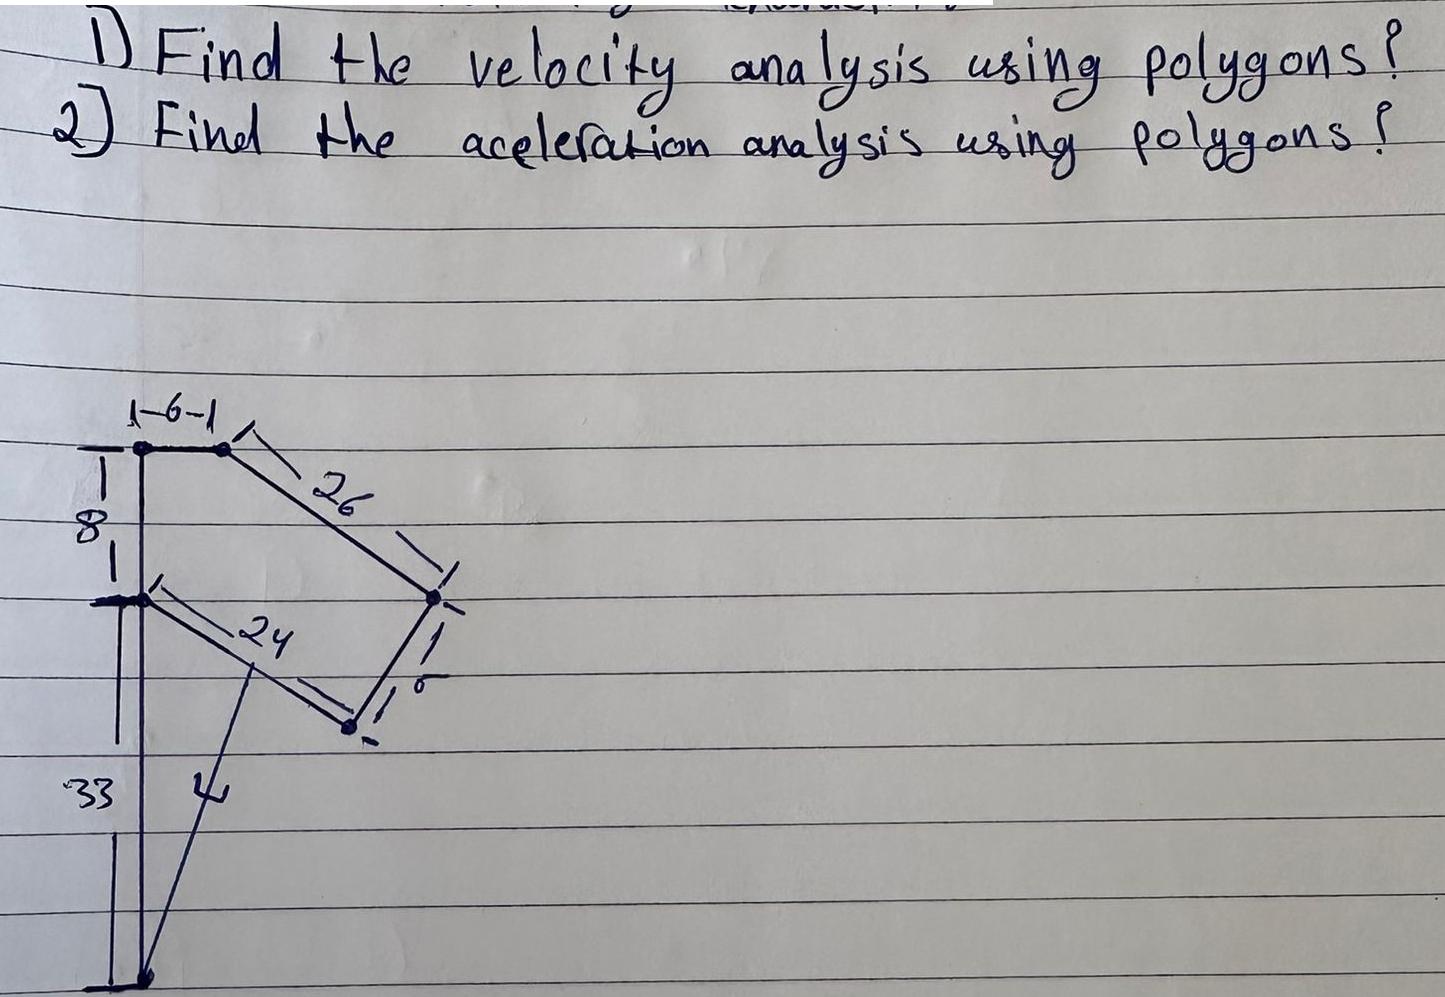 1) Find the velocity analysis using polygons?
2) Find the aceleration analysis using polygons?
6
26
8
24
33